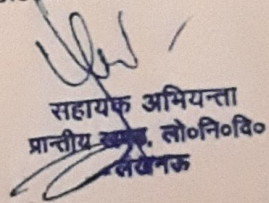 सहायक अभियन्ता
प्रान्तीय खण्ड, लो०नि०वि०
लखनऊ